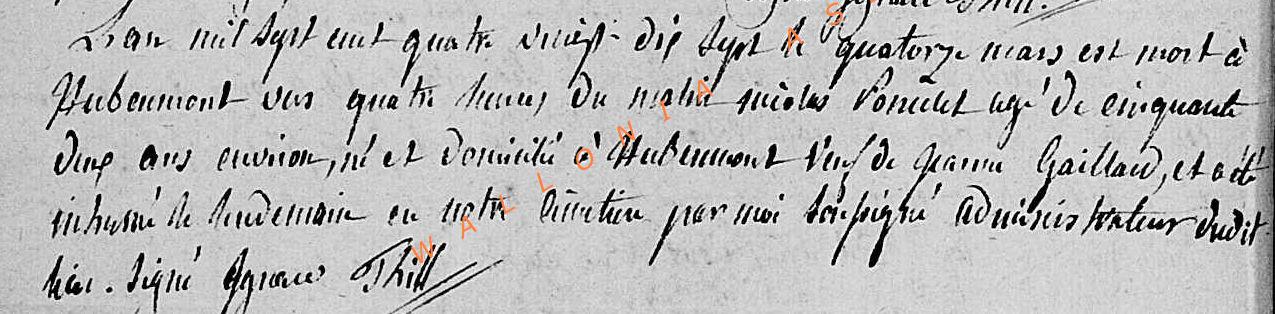 Ignace Thill.
L'an mil sept cent quatre vingt dix sept le quatorze mars est mort à
Hubermont vers quatre heures du matin nicolas Poncelet agé de cinquante
deux ans environ, né et domicilié à Hubermont veuf de jeanne Gaillard, et a été
inhumé le lendemain en notre cimetiere par moi soussigné administrateur dudit
lieu. signé Ignace Thill
WALLONIA AS